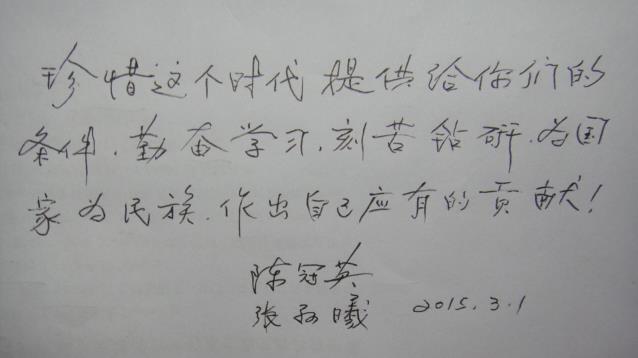 珍惜这个时代提供给你们的
条件、勤奋学习、刻苦钻研、为国
家为民族、作出自己应有的贡献！
陈冠英
张曦 2015.3.1